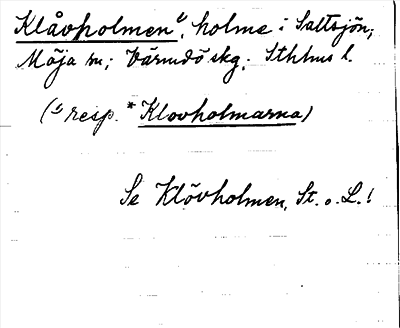 Klåvholmen¹⁾, holme i Saltsjön;
Möja sn; Värmdö skg. Sthlms l.
(¹⁾ resp. *Klovholmarna)
Se Klövholmen, St. o. L.!